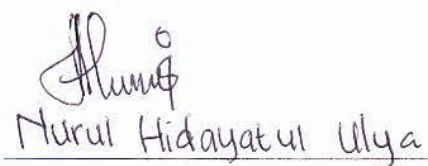 Nurul Hidayatul Ulya